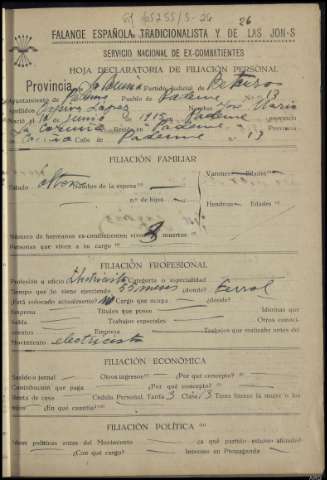 26
FALANGE ESPAÑOLA TRADICIONALISTA Y DE LAS JON-S
SERVICIO NACIONAL DE EX-COMBATIENTES
HOJA DECLARATORIA DE FILIACIÓN PERSONAL
Provincia La Coruña Partido Judicial de Betanzos
Ayuntamiento de Paderne Pueblo de Paderne Nº 13
Apellidos López Nombre José María
Nació el 10 Junio 1915 en Paderne provincia
La Coruña Reside en Paderne Provincia
Coruña Calle de Paderne nº 13
FILIACIÓN FAMILIAR
Estado soltero nombre de la esposa Varones Edades
n.º de hijos Hembras Edades
Número de hermanos ex-combatientes, vivos 3 muertos
Personas que viven a su cargo
FILIACIÓN PROFESIONAL
Profesión u oficio Electricista Categoría o especialidad
Tiempo que lo viene ejerciendo 33 meses ¿donde? Ferrol
¿Está colocado actualmente? no Cargo que ocupa ¿donde?
Empresa Títulos que posee Idiomas que
habla Trabajos especiales Otros conoci-
mientos Empresa Trabajos que realizaba antes del
Movimiento electricista
FILIACIÓN ECONÓMICA
Sueldo o jornal Otros ingresos ¿Por qué concepto?
Contribución que paga ¿Por qué concepto?
Renta de casa Cédula Personal Tarifa 3 Clase 13 Tiene bienes la mujer o los
hijos ¿En qué cuantía?
FILIACIÓN POLÍTICA
Ideas políticas antes del Movimiento ¿a qué partido estuvo afiliado?
¿Con qué cargo? Intervino en Propaganda